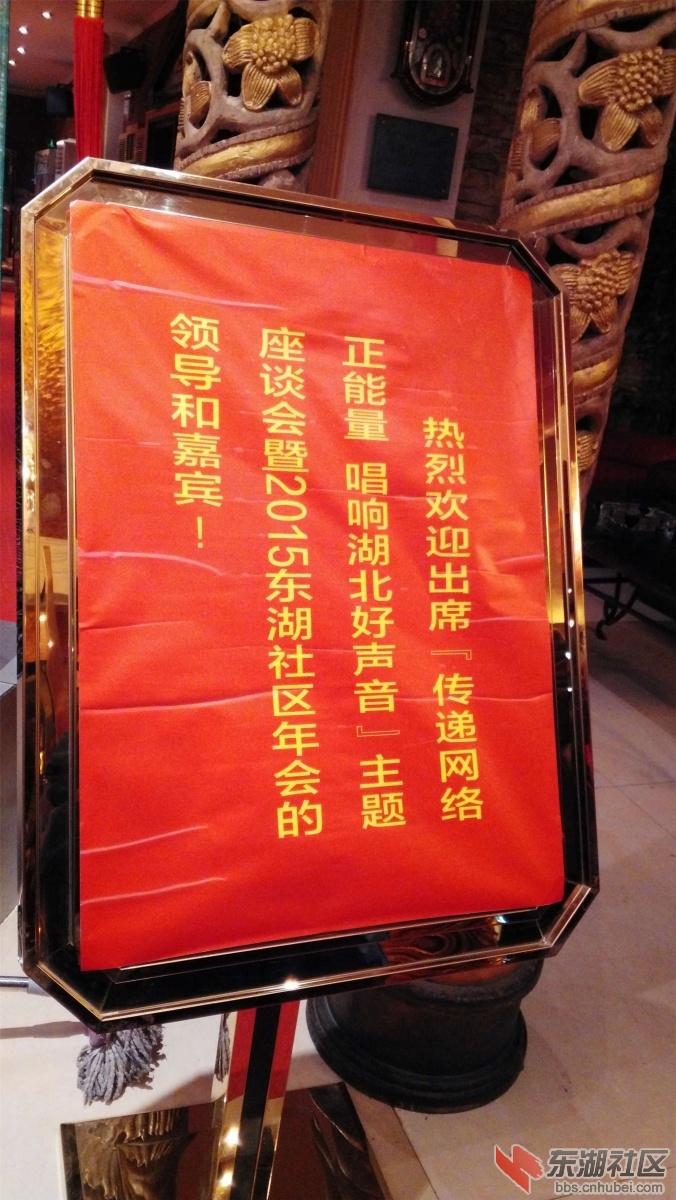 热烈欢迎出席『传递网络
正能量 唱响湖北好声音』主题
座谈会暨2015东湖社区年会的
领导和嘉宾！
东湖社区
bbs.cnhubei.com